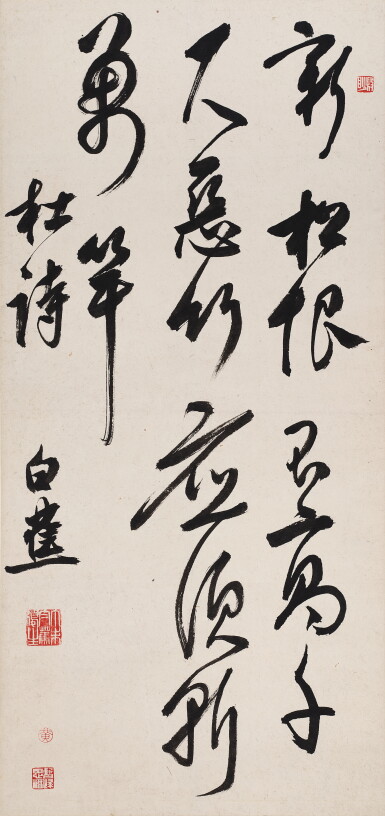 新松恨不高千
尺惡竹應須斬
萬竿
杜詩 白蕉